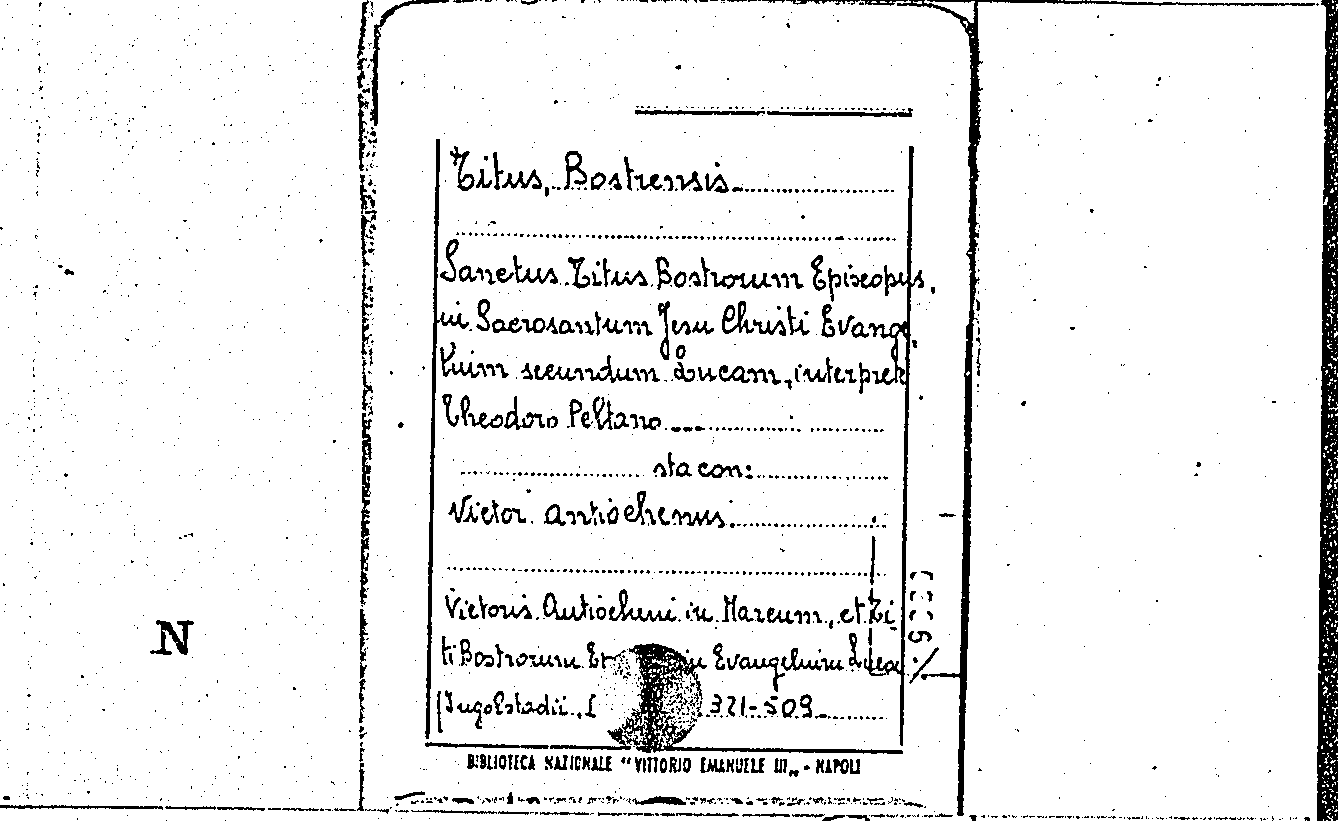 Titus, Bostrensis
Sanctus Titus Bostrorum Episcopus,
in Sacrosantum Jesu Christi Evange
lium secundum Lucam, interpret
Theodoro Peltano
sta con:
Victor Antiochenus.
Victoris Antiocheni in Marcum, et Ti
ti Bostrorum in Evangelium Lucae
Ingolstadii, 321-509
BIBLIOTECA NAZIONALE "VITTORIO EMANUELE III„ - NAPOLI
N